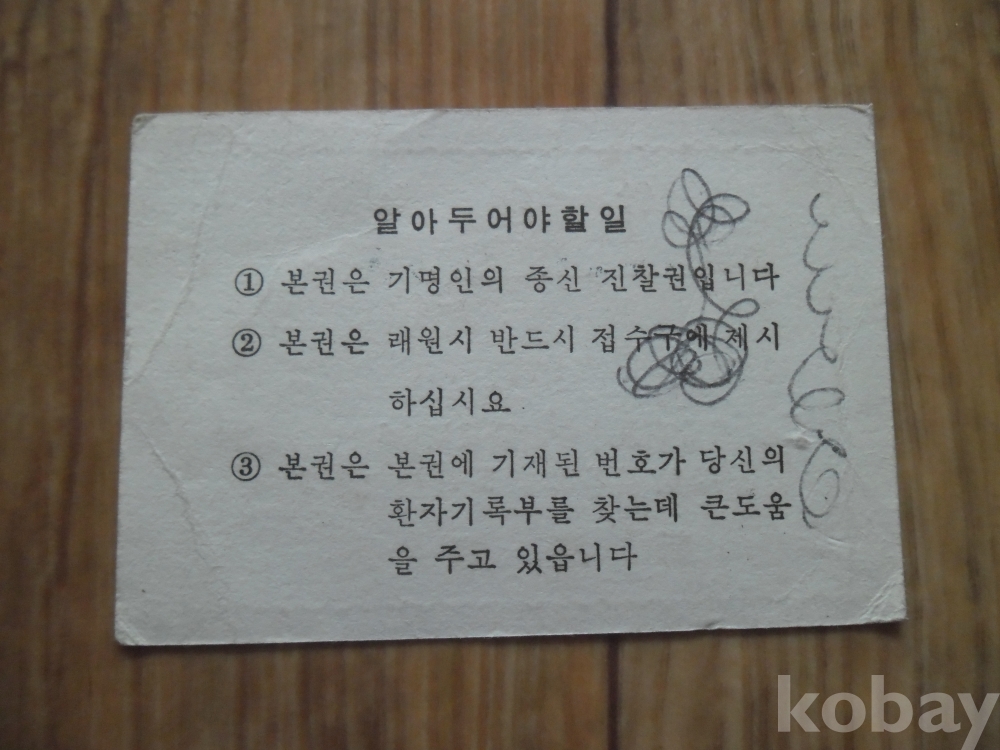 알아두어야할일
① 본권은 기명인의 종신 진찰권입니다
② 본권은 래원시 반드시 접수구에 제시
하십시요
③ 본권은 본권에 기재된 번호가 당신의
환자기록부를 찾는데 큰도움
을 주고 있읍니다
kobay